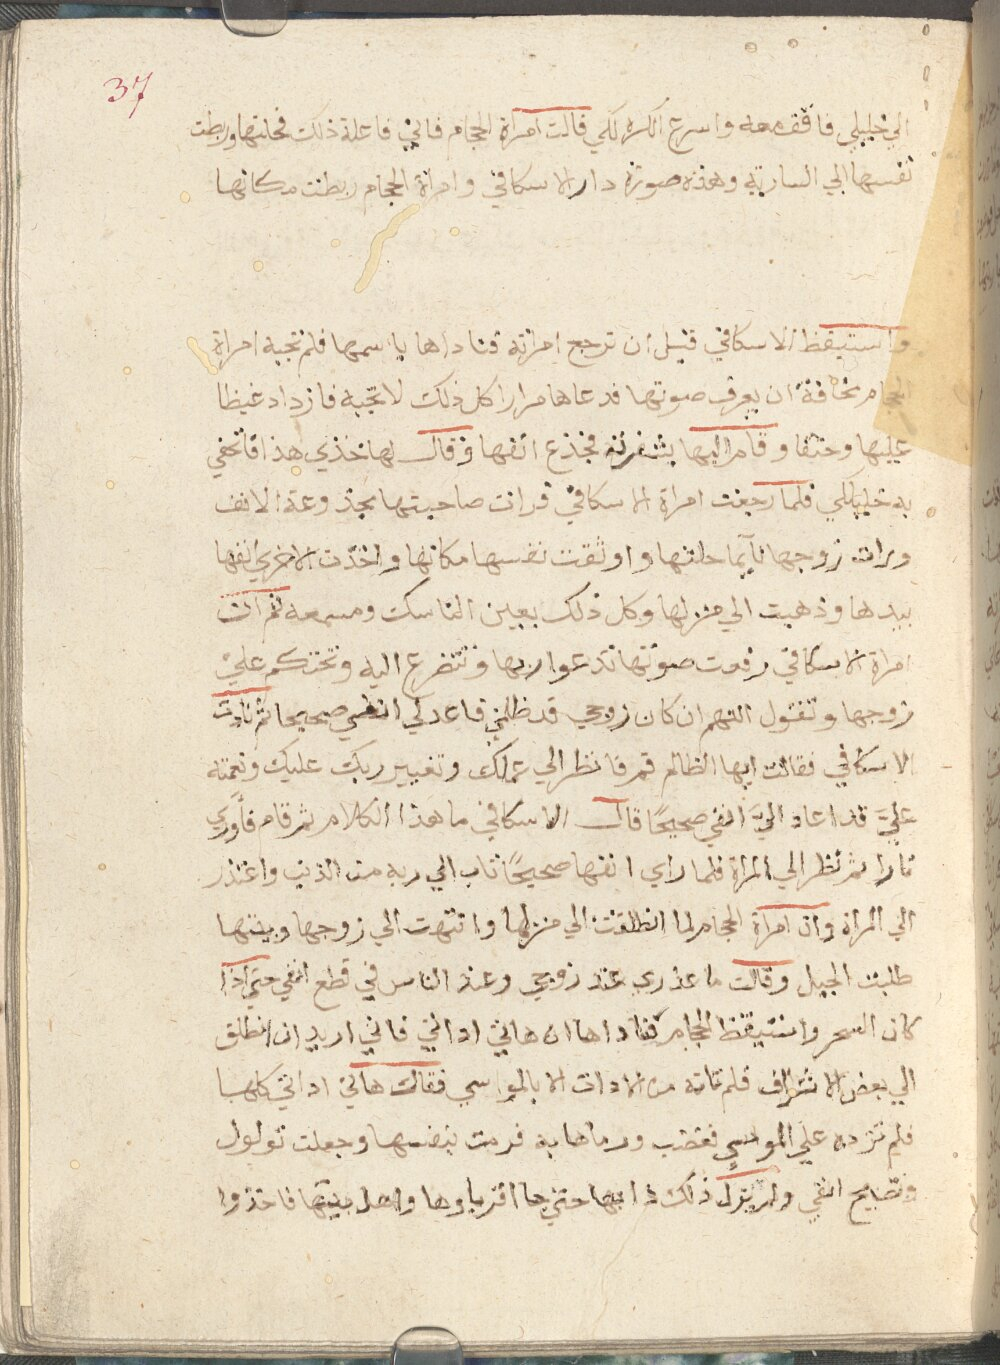 37
الي خليلي فاقف معه واسرع الكره لكي قالت امراة الحجام فاني فاعلة ذلك فحلتها وربطت
نفسها الي السارية وهذه صورة دار الاسكافي وامراة الحجام ربطت مكانها
واستيقظ الاسكافي قبل ان ترجع امراته فناداها باسمها فلم تجبه امراة
الحجام مخافة ان يعرف صوتها فدعاها مرارا كل ذلك لا تجبه فازداد غيظا
عليها وحنقا وقام اليها بشفرته فجذع انفها وقال لها خذي هذا فاتحفي
به خليلكي فلما رجعت امراة الاسكافي فرات صاحبتها مجذوعة الانف
ورات زوجها نايما حلتها واوثقت نفسها مكانها واخذت الاخري انفها
بيدها وذهبت الي منزلها وكل ذلك بعين الناسك ومسمعه ثم ان
امراة الاسكافي رفعت صوتها تدعوا ربها وتتضرع اليه وتحتكم علي
زوجها وتقول اللهم ان كان زوجي قد ظلمني فاعد لي انفي صحيحا ثم نادت
الاسكافي فقالت ايها الظالم قم فانظر الي عملك وتغيير ربك عليك ونعمته
عليَّ قد اعاد اليَّ انفي صحيحًا قال الاسكافي ما هذا الكلام ثم قام فاوري
نارا ثم نظر الي المراة فلما راي انفها صحيحًا تاب الي ربه من الذنب واعتذر
الي المراة وان امراة الحجام لما انطلقت الي منزلها وانتهت الي زوجها وبيتها
طلبت الحيل وقالت ما عذري عند زوجي وعند الناس في قطع انفي حتي اذا
كان السحر واستيقظ الحجام فناداها ان هاتي اداتي فاني اريد ان انطلق
الي بعض الاشراف فلم تاته من الادات الا بالمواسي فقالت هاتي اداتي كلها
فلم تزده علي الموسي فغضب ورماها به فرمت بنفسها وجعلت تولول
وتصيح انفي ولم يزل ذلك دابها حتي جا اقرباوها واهل بيتها فاخذوا